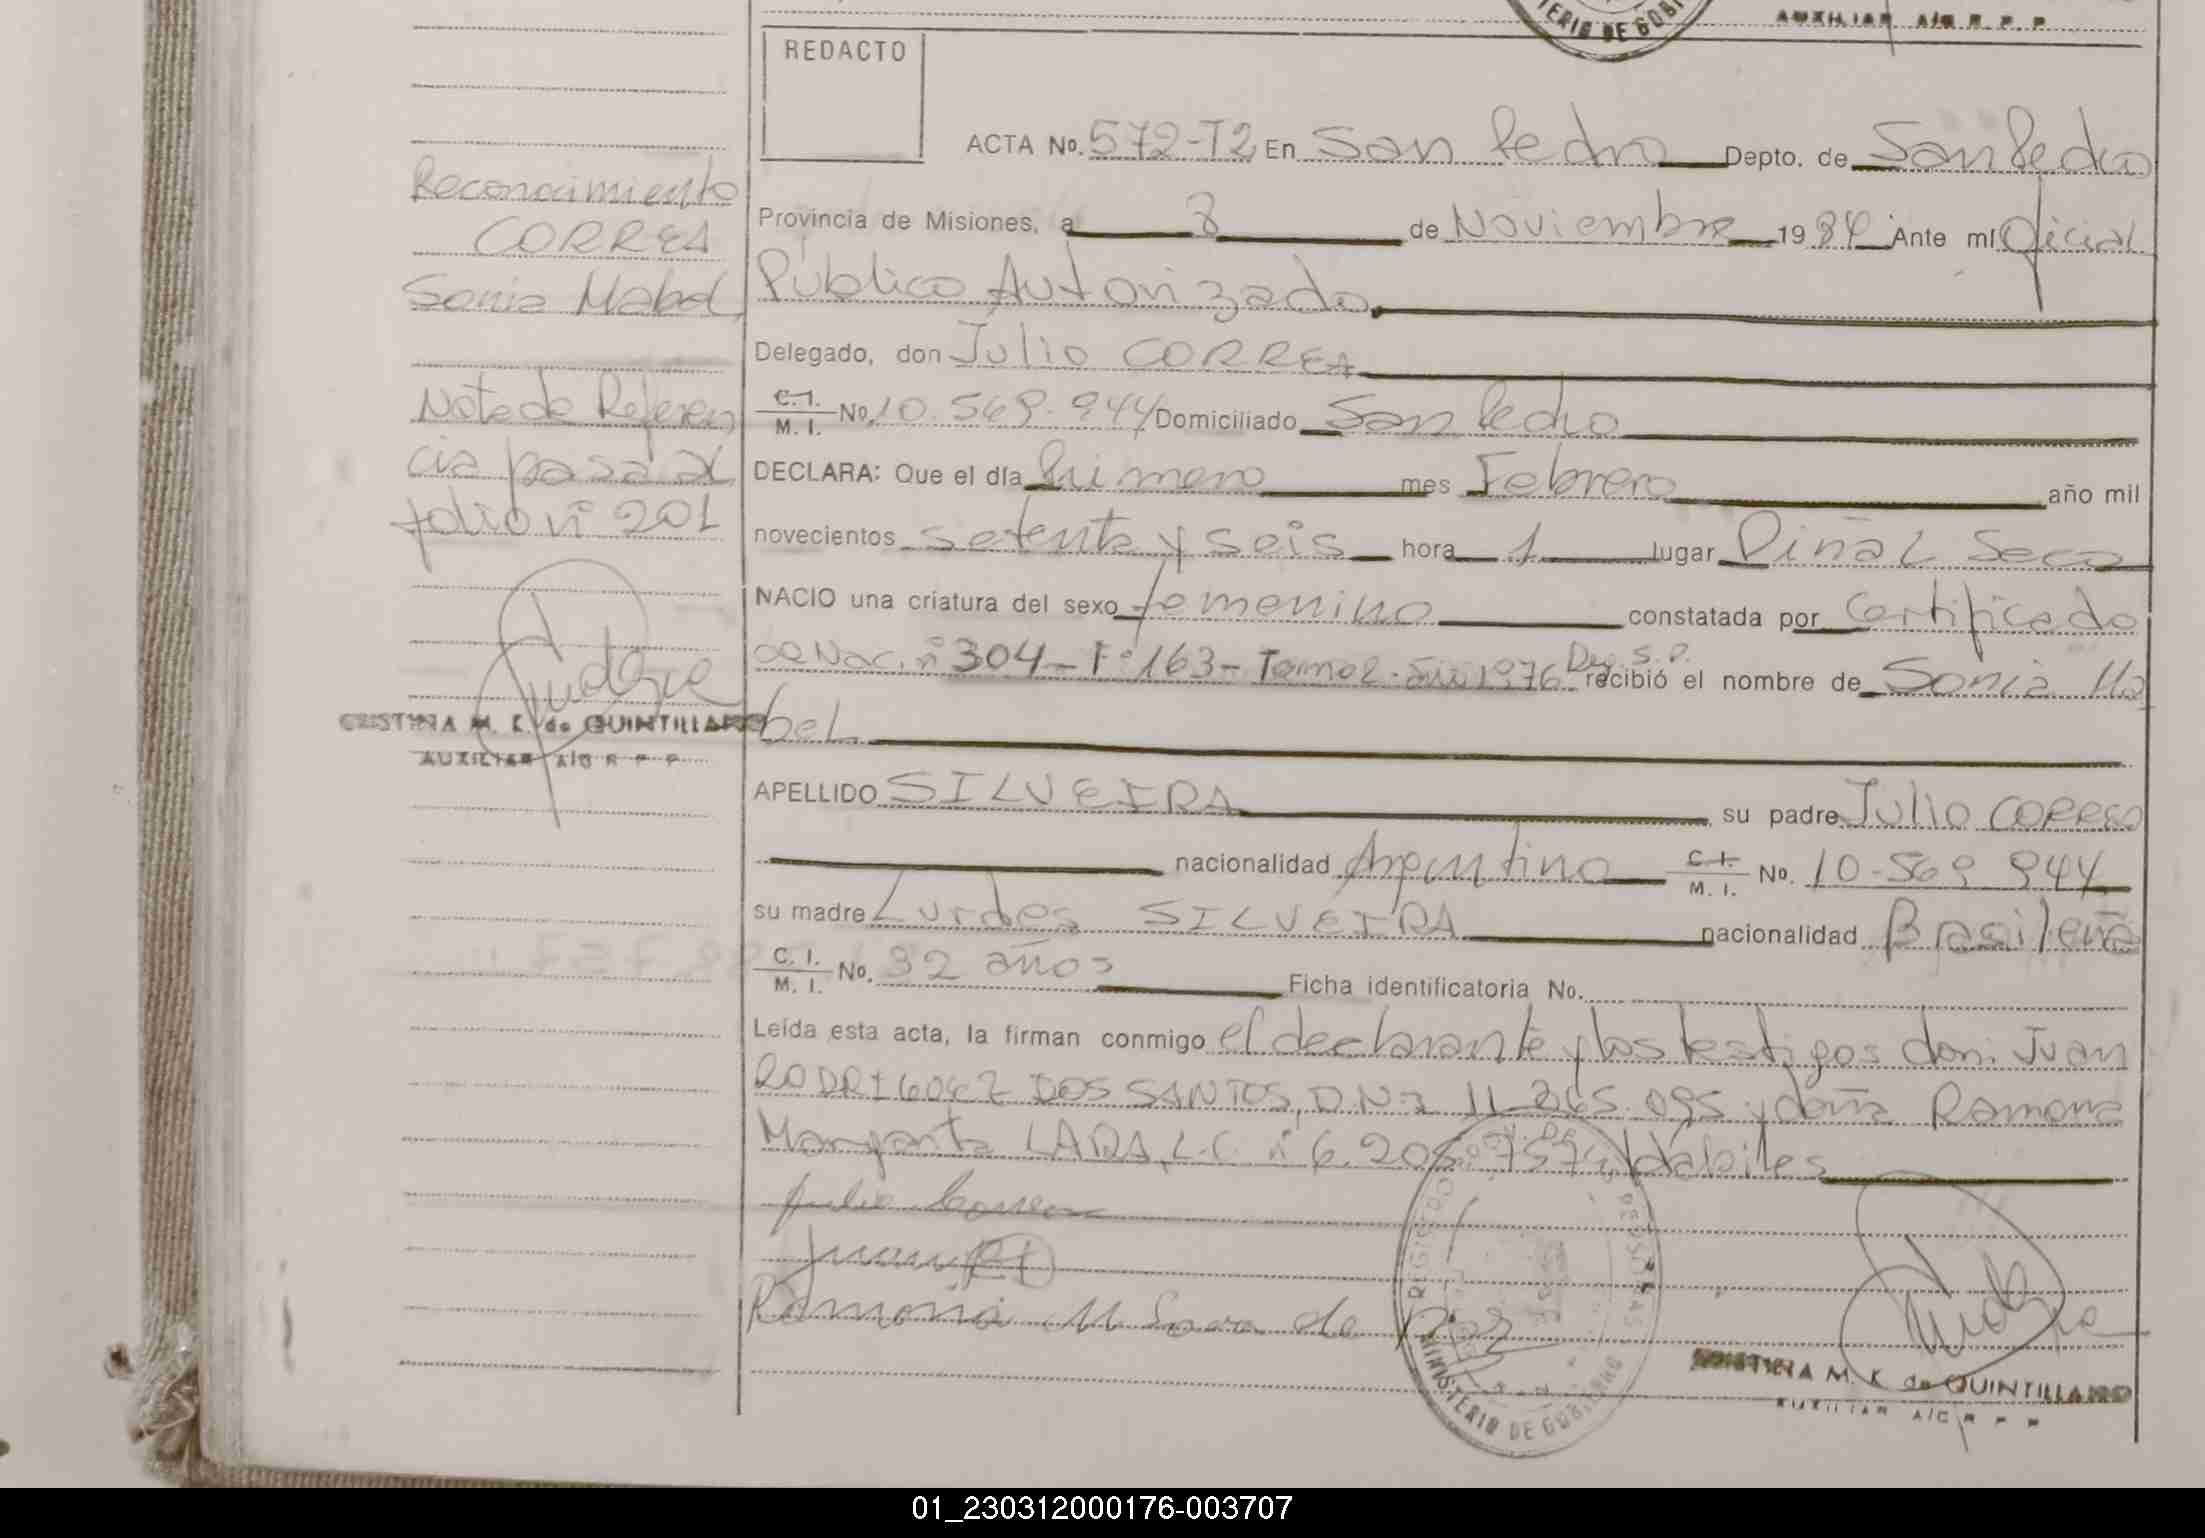 TERIO DE GOBI
AUXILIAR A/C R P P
REDACTO
ACTA No. 572-T2 En San Pedro Depto. de San Pedro
Provincia de Misiones, a 8 de Noviembre 1984 Ante mí Oficial
Público Autorizado
Delegado, don Julio CORREA
C.I. M. I. No. 10.569.944 Domiciliado San Pedro
DECLARA: Que el día Primero mes Febrero año mil
novecientos setenta y seis hora 1 lugar Piñal Seco
NACIO una criatura del sexo femenino constatada por Certificado
de Nac. nº 304 - Fº 163 - Tomo 2 - año 1976 Deg. S.P. recibió el nombre de Sonia Ma
bel
APELLIDO SILVEIRA su padre Julio CORREA
nacionalidad Argentino C.I. M. I. No. 10.569.944
su madre Lurdes SILVEIRA nacionalidad Brasileña
C. I. M. I. No. 32 años Ficha identificatoria No.
Leída esta acta, la firman conmigo el declarante y los testigos don: Juan
RODRIGUEZ DOS SANTOS, D.N.I 11.265.095 y doña Ramona
Margarita LARA, L.C. nº 6.205.7574 hábiles
Julio Correa
Juan
Ramona M Lara de
REGISTRO DE LAS PERSONAS
MINISTERIO DE GOBIERNO
CRISTINA M. K. de QUINTILLANO
AUXILIAR A/C R P P
Reconocimiento
CORREA
Sonia Mabel
Nota de Referen
cia pasa al
folio nº 201
CRISTINA M. K. de QUINTILLANO
AUXILIAR A/C R P P
01_230312000176-003707